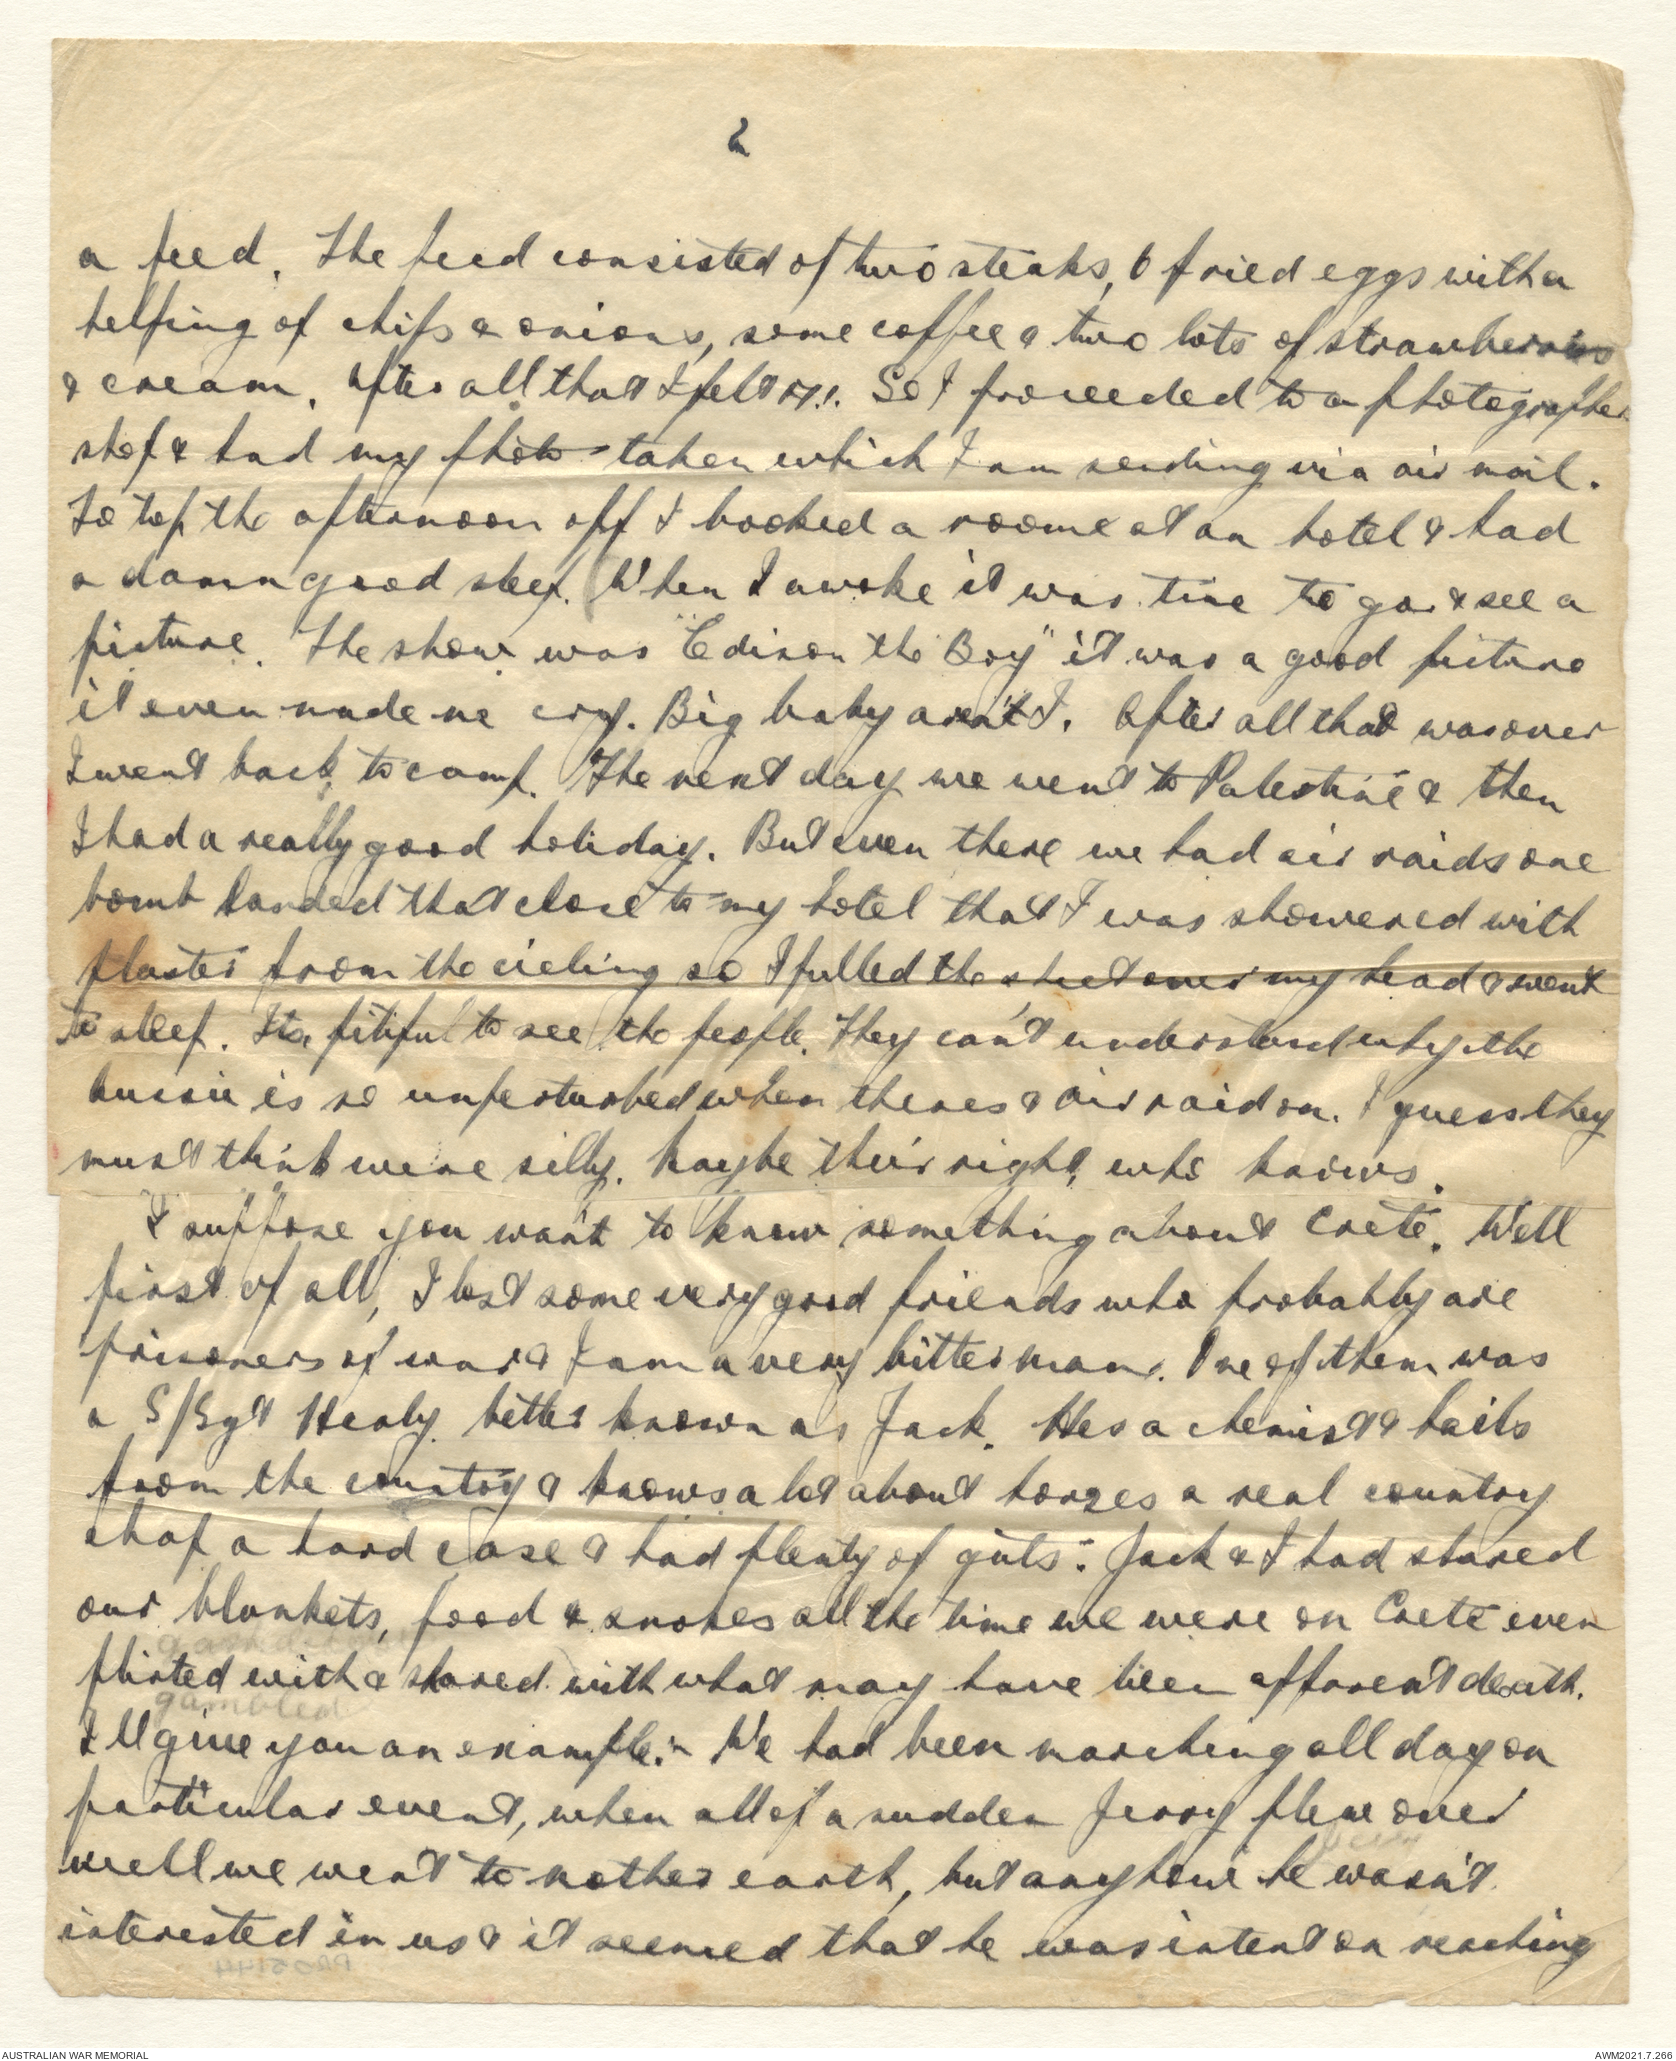 2
a feed. The feed consisted of two steaks, 6 fried eggs with a
helping of chips & onions, some coffee & two lots of strawberries
& cream. After all that I felt So I proceeded to a photographer
shop & had my photo taken which I am sending via air mail.
To top the afternoon off I booked a roome at an hotel & had
a damn good sleep. When I awoke it was time to go & see a
picture. The show was "Edison the Boy" it was a good picture
it even made me cry. Big baby aren't I. After all that was over
I went back to camp. The next day we went to Palestine & then
I had a really good holiday. But even there we had air raids one
bomb landed that close to my hotel that I was showered with
plaster from the cieling so I pulled the sheet over my head & went
to sleep. Its pitiful to see the people. They can't understand why the
Aussie is so unperturbed when theres a air raid on. I guess they
must think were silly. Maybe their right, who knows.
I suppose you want to know something about Crete. Well
first of all, I lost some very good friends who probably are
prisoners of war & I am a very bitter man. One of them was
a S/Sgt Healy better known as Jack. Hes a chemist & hails
from the country & knows a lot about horses a real country
chap a hard case & had plenty of guts. Jack & I had shared
our blankets, food & smokes all the time we were on Crete even
flirted with & shared with what may have been apparent death.
gambled
I'll give you an example:- We had been marching all day on
particular event, when all of a sudden Jerry flew over
well we went to mother earth, but anyhow he wasn't
interested in us & it seemed that he was intent on reaching
AUSTRALIAN WAR MEMORIAL
AWM2021.7.266